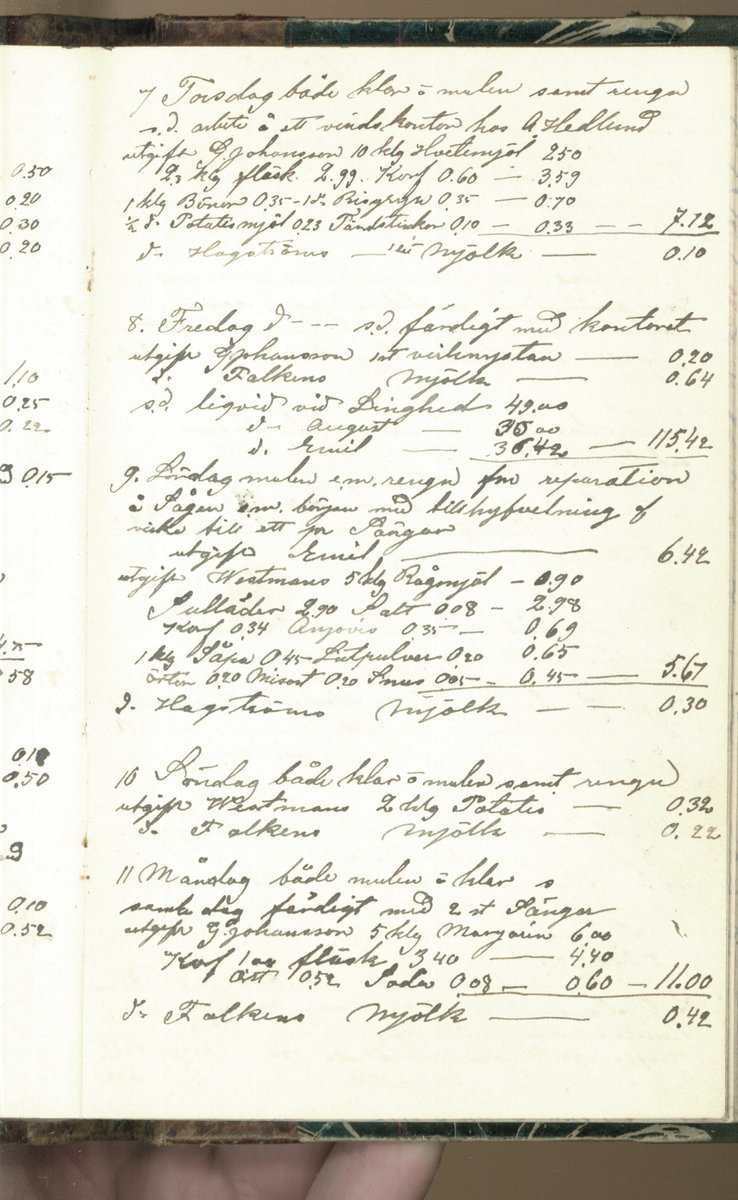 0.50
0.20
0.30
0.20
1.10
0.25
0.22
0.15
4.75
58
0.50
0.10
0.52
7 Torsdag både klar o mulen samt rengn
s.d. arbete å ett vindskontor hos A. Hedlund
utgift G Johansson 10 klg Hvetemjöl 2.50
2,3 kg fläsk 2.99. Korf 0.60 — 3.59
1 klg Bönor 0.35 - 1 d. Risgryn 0.35 — 0.70
½ d. Potatismjöl 0.23 Tändstickor 0.10 — 0.33 — — 7.12
d. Hagströms — Mjölk — 0.10
8. Fredag d - - - s.d. färdigt med kontoret
utgift G Johansson 1 st virknystan — 0.20
d. Falkens Mjölk — 0.64
s.d. liqvid vid Linghed 49.00
d. August — 30.00
d. Emil — 36.42 — 115.42
9. Lördag mulen e.m. rengn fm reparation
å Sågen e.m. början med tillhyfvelning af
virke till ett par Sängar
utgift Emil — 6.42
utgift Westmans 5 klg Rågmjöl — 0.90
Sulläder 2.90 Salt 0.08 — 2.98
Korf 0.34 Anjovis 0.35 — 0.69
1 klg Såpa 0.45 Lutpulver 0.20 0.65
ärtor 0.20 Misost 0.20 Snus 0.05 — 0.45 — 5.67
d. Hagströms Mjölk — — 0.30
10 Söndag både klar o mulen samt rengn
utgift Westmans 2 klg Potatis — 0.32
d. Falkens Mjölk — 0.22
11 Måndag både mulen o klar s
samma dag färdigt med 2 st Sängar
utgift G. Johansson 5 klg Margarin 6.00
Korf 1.00 fläsk 3.40 — 4.40
Ost 0.52 Soda 0.08 — 0.60 — 11.00
d. Falkens Mjölk — 0.42